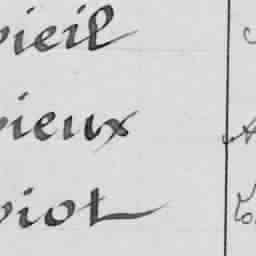 vieil
vieux
viot